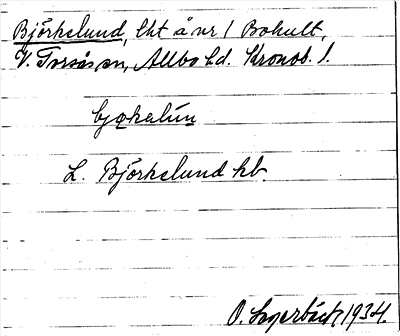 Björkelund, lht å nr 1 Bohult,
V. Torsås sn, Allbo hd. Kronob. l.
bjøkelún
L. Björkelund kb
O. Lagerbäck 1934.